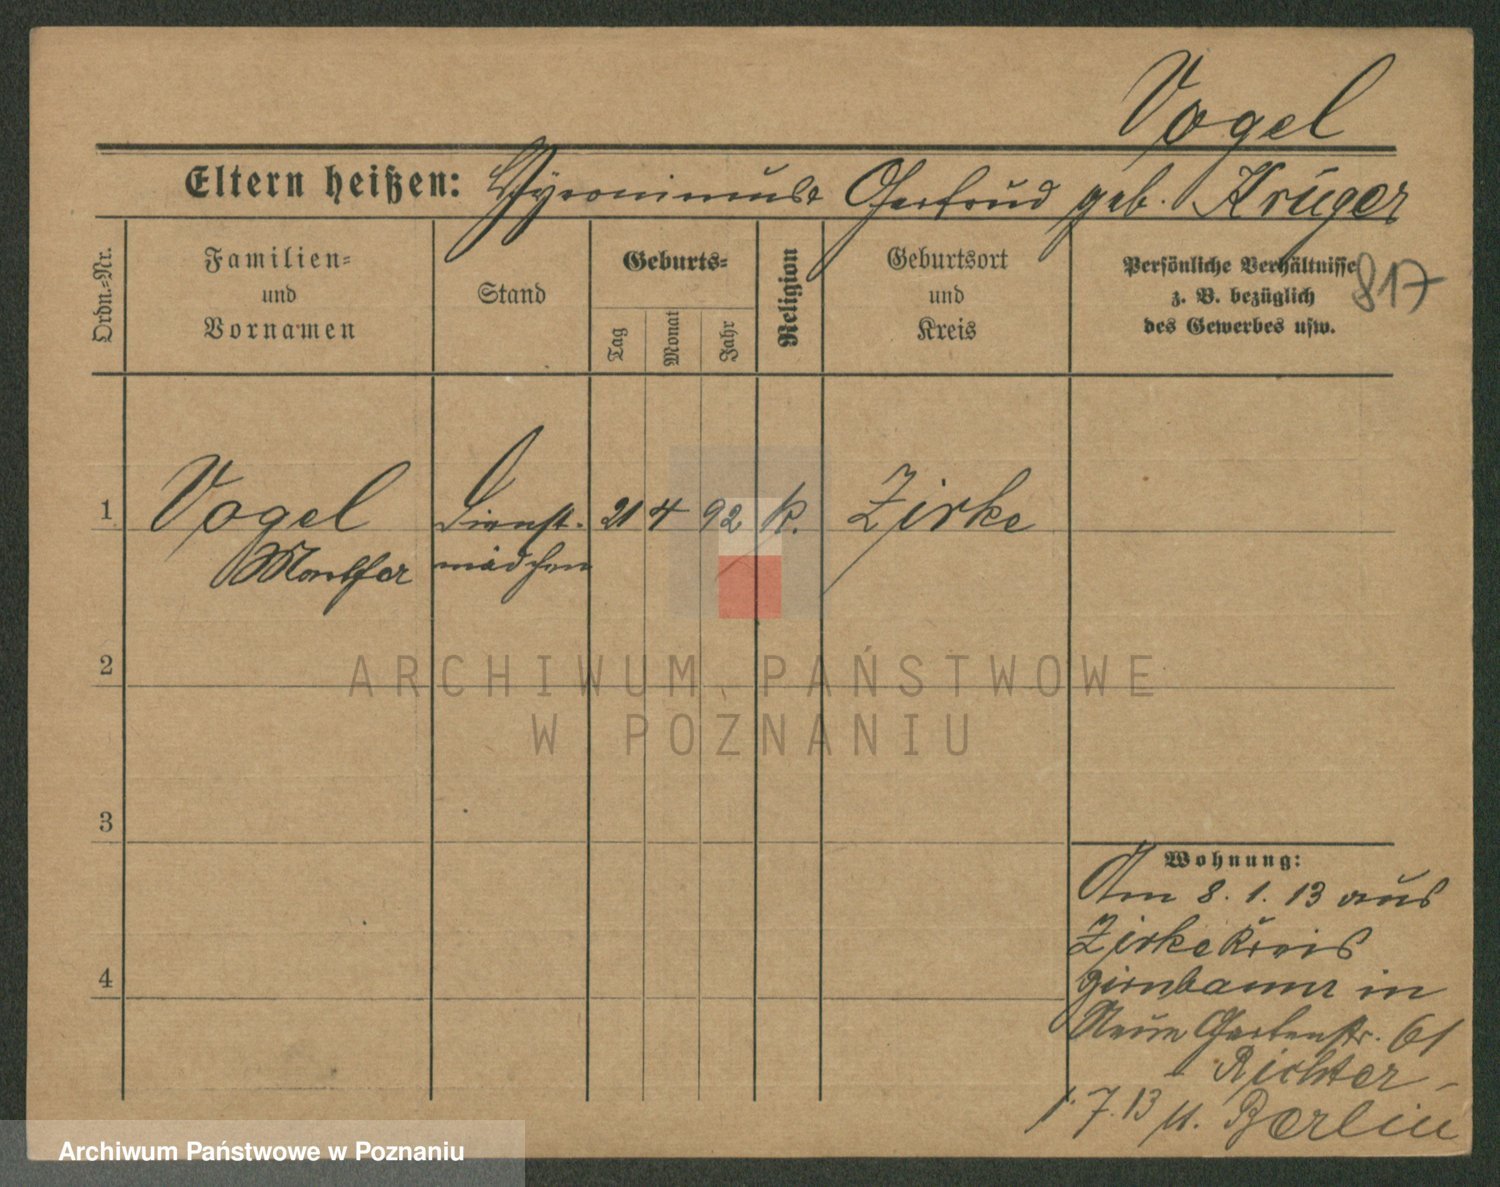 Vogel
Eltern heißen: Gertrud geb. Krüger
Ordn.-Nr.
Familien-
und
Vornamen
Stand
Geburts-
Tag
Monat
Jahr
Religion
Geburtsort
und
Kreis
Persönliche Verhältnisse
z. B. bezüglich
des Gewerbes usw.
817
1 Vogel Dienst- 21 4 92 k. Zirke
mädchen
2
3
4
Wohnung:
Am 8. 1. 13 aus
Zirke Kreis
Birnbaum in
Neue Gartenstr. 61
Richter -
1. 7. 13 n. Berlin
ARCHIWUM PAŃSTWOWE
W POZNANIU
Archiwum Państwowe w Poznaniu